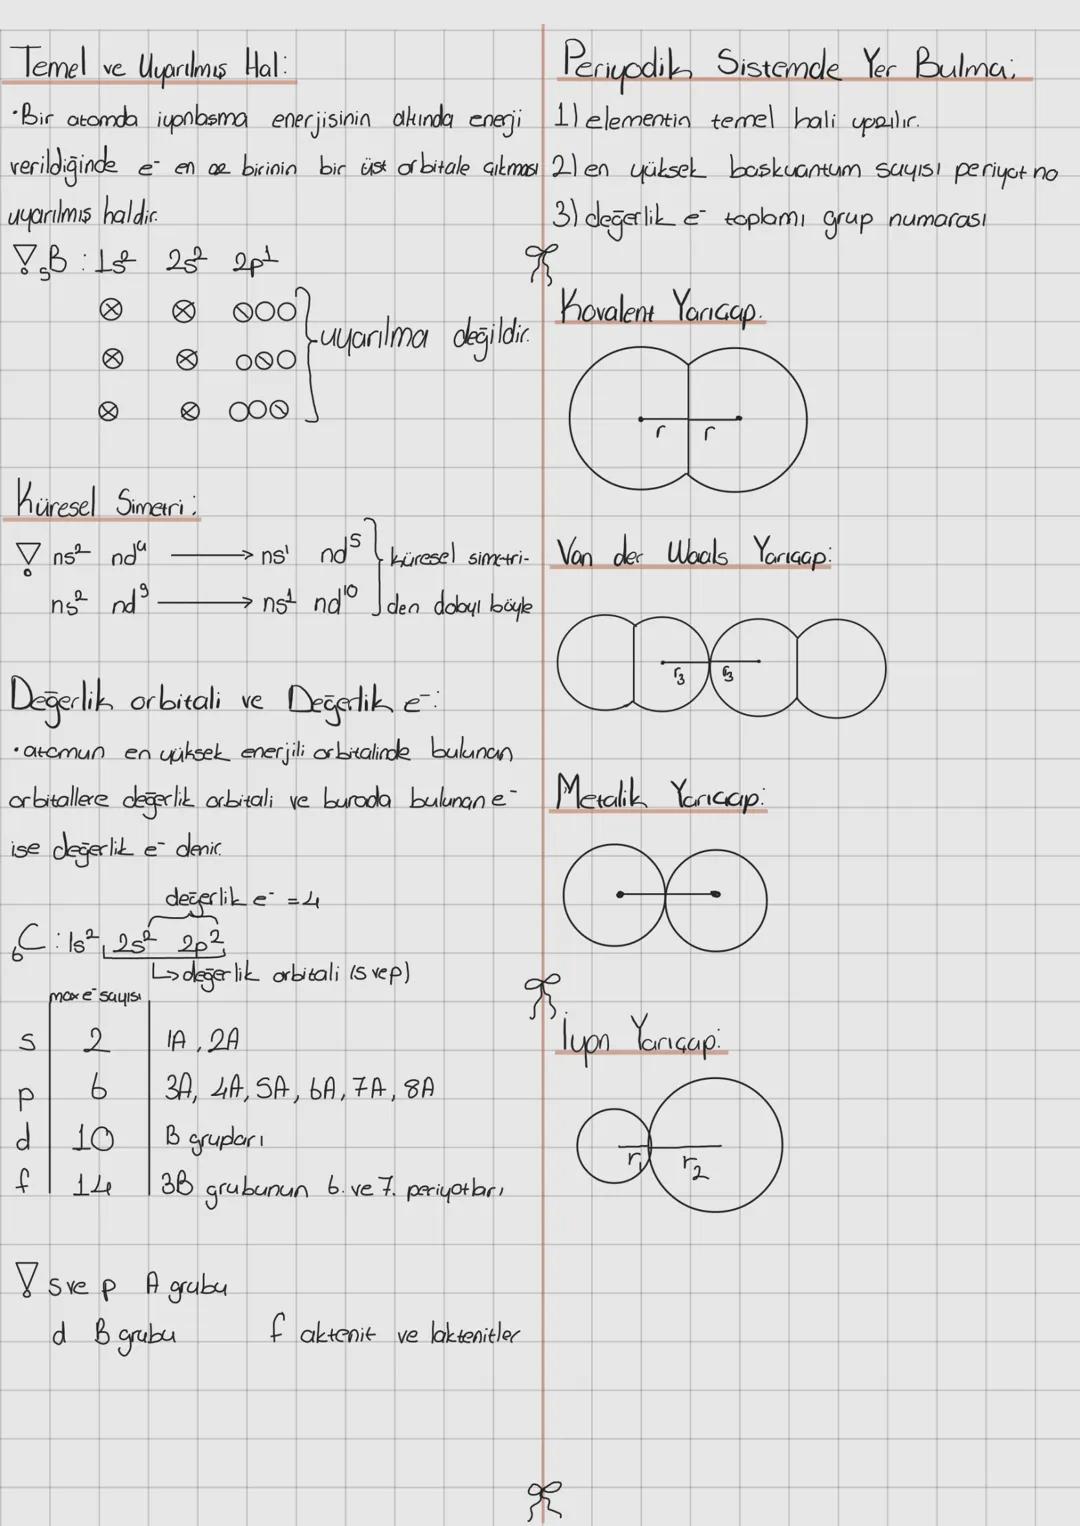 Temel ve Uyarılmış Hal:
•Bir atomda iyonlaşma enerjisinin altında enerji
verildiğinde e⁻ en az birinin bir üst orbitale çıkması
uyarılmış haldir.
₅B : 1s² 2s² 2p¹
uyarılma değildir.
Küresel Simetri:
ns² nd⁴ → ns¹ nd⁵
ns² nd⁹ → ns¹ nd¹⁰
küresel simetri-
den dolayı böyle
Değerlik orbitali ve Değerlik e⁻:
•atomun en yüksek enerjili orbitalinde bulunan
orbitallere değerlik orbitali ve burada bulunan e⁻
ise değerlik e⁻ denir.
değerlik e⁻ = 4
₆C : 1s² 2s² 2p²
↳ değerlik orbitali (s ve p)
max e⁻ sayısı
s 2 1A, 2A
p 6 3A, 4A, 5A, 6A, 7A, 8A
d 10 B grupları
f 14 3B grubunun 6. ve 7. periyotları
! s ve p A grubu
d B grubu f aktenit ve laktenitler
Periyodik Sistemde Yer Bulma:
1) elementin temel hali yazılır.
2) en yüksek başkuantum sayısı periyot no
3) değerlik e⁻ toplamı grup numarası
Kovalent Yarıçap:
r r
Van der Waals Yarıçap:
r₃ r₃
Metalik Yarıçap:
İyon Yarıçap:
r₁ r₂